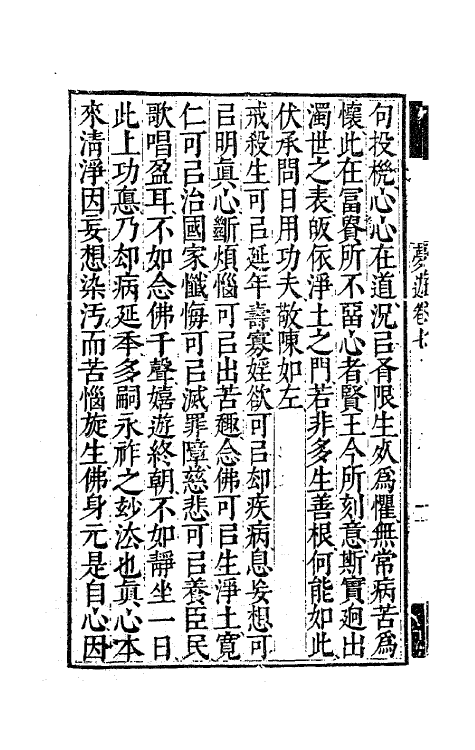 夢遊卷七
句投機心心在道況㠯有限生死爲懼無常病苦爲
懷此在富貴所不畱心者賢王今所刻意斯實迥出
濁世之表皈依淨土之門若非多生善根何能如此
伏承問日用功夫敬陳如左
戒殺生可㠯延年壽寡婬欲可㠯却疾病息妄想可
㠯明眞心斷煩惱可㠯出苦趣念佛可㠯生淨土寬
仁可㠯治國家懺悔可㠯滅罪障慈悲可㠯養臣民
歌唱盈耳不如念佛千聲嬉遊終朝不如靜坐一日
此上功悳乃却病延秊多嗣永祚之玅法也眞心本
來淸淨因妄想染汚而苦惱旋生佛身元是自心因